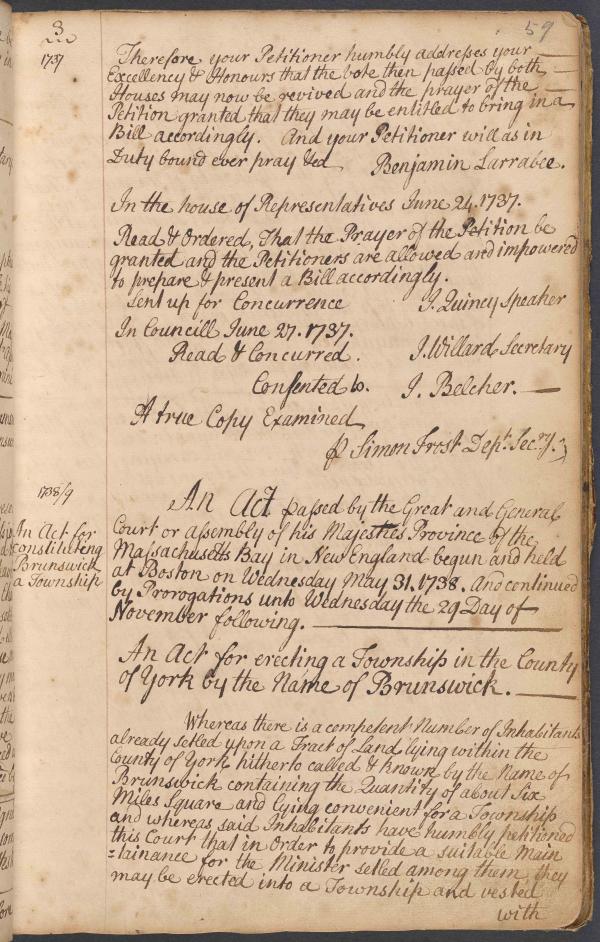 3
59
1737
Therefore your Petitioner humbly addresses your
Excellency & Honours that the vote then passed by both
Houses may now be revived and the prayer of the
Petition granted that they may be entitled to bring in a
Bill accordingly. And your Petitioner will as in
Duty bound ever pray &cd Benjamin Larrabee.
In the house of Representatives June 24. 1737.
Read & Ordered, That the Prayer of the Petition be
granted and the Petitioners are allowed and impowered
to prepare & present a Bill accordingly.
Sent up for Concurrence J. Quincy Speaker
In Councill June 27. 1737.
Read & Concurred. J. Willard Secretary
Consented to. J. Belcher.
A true Copy Examined
℘ Simon Frost Dept. Secry.
1738/9
An Act for
constituteng
Brunswick
a Township
An Act passed by the Great and General
Court or assembly of his Majesties Province of the
Massachusetts Bay in New England begun and held
at Boston on Wednesday May 31. 1738. And continued
by Prorogations unto Wednesday the 29 Day of
November following.
An Act for erecting a Township in the County
of York by the Name of Brunswick.
Whereas there is a competent Number of Inhabitants
already setled upon a Tract of Land lying within the
County of York hitherto called & known by the Name of
Brunswick containing the Quantity of about Six
Miles Square and lying convenient for a Township
and whereas said Inhabitants have humbly petitioned
this Court that in Order to provide a suitable Main
=tainance for the Minister setled among them, they
may be erected into a Township and vested
with